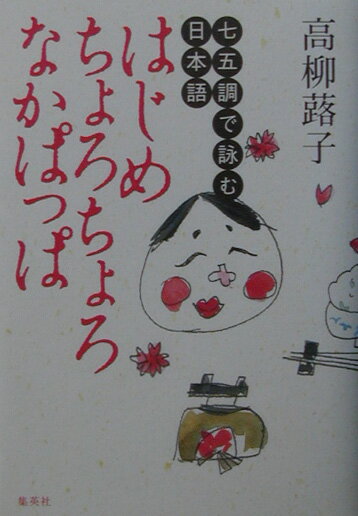 高柳蕗子
七五調で詠む
日本語
はじめ
ちょろちょろ
なかぱっぱ
集英社